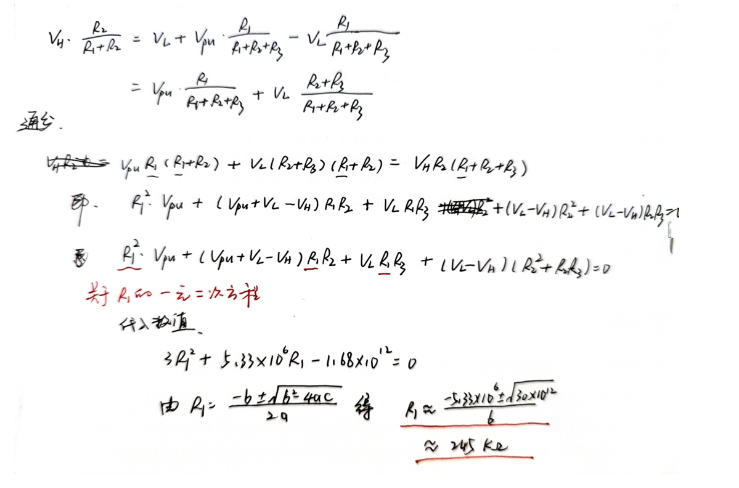 V_H · R₂/(R₁+R₂) = V_L + Vpu · R₁/(R₁+R₂+R₃) − V_L R₁/(R₁+R₂+R₃)
= Vpu · R₁/(R₁+R₂+R₃) + V_L (R₂+R₃)/(R₁+R₂+R₃)
通分.
Vpu R₁(R₁+R₂) + V_L(R₂+R₃)(R₁+R₂) = V_H R₂(R₁+R₂+R₃)
即. R₁²·Vpu + (Vpu+V_L−V_H)R₁R₂ + V_L R₁R₃ +(V_L−V_H)R₂² + (V_L−V_H)R₂R₃=
R₁²·Vpu + (Vpu+V_L−V_H)R₁R₂ + V_L R₁R₃ + (V_L−V_H)(R₂²+R₂R₃)=0
关于R₁的一元二次方程
代入数值.
3R₁² + 5.33×10⁶R₁ − 1.68×10¹² = 0
由 R₁= (−b±√(b²−4ac))/2a 得 R₁≈ (−5.33×10⁶±√(30×10¹²))/6
≈ 245 KΩ